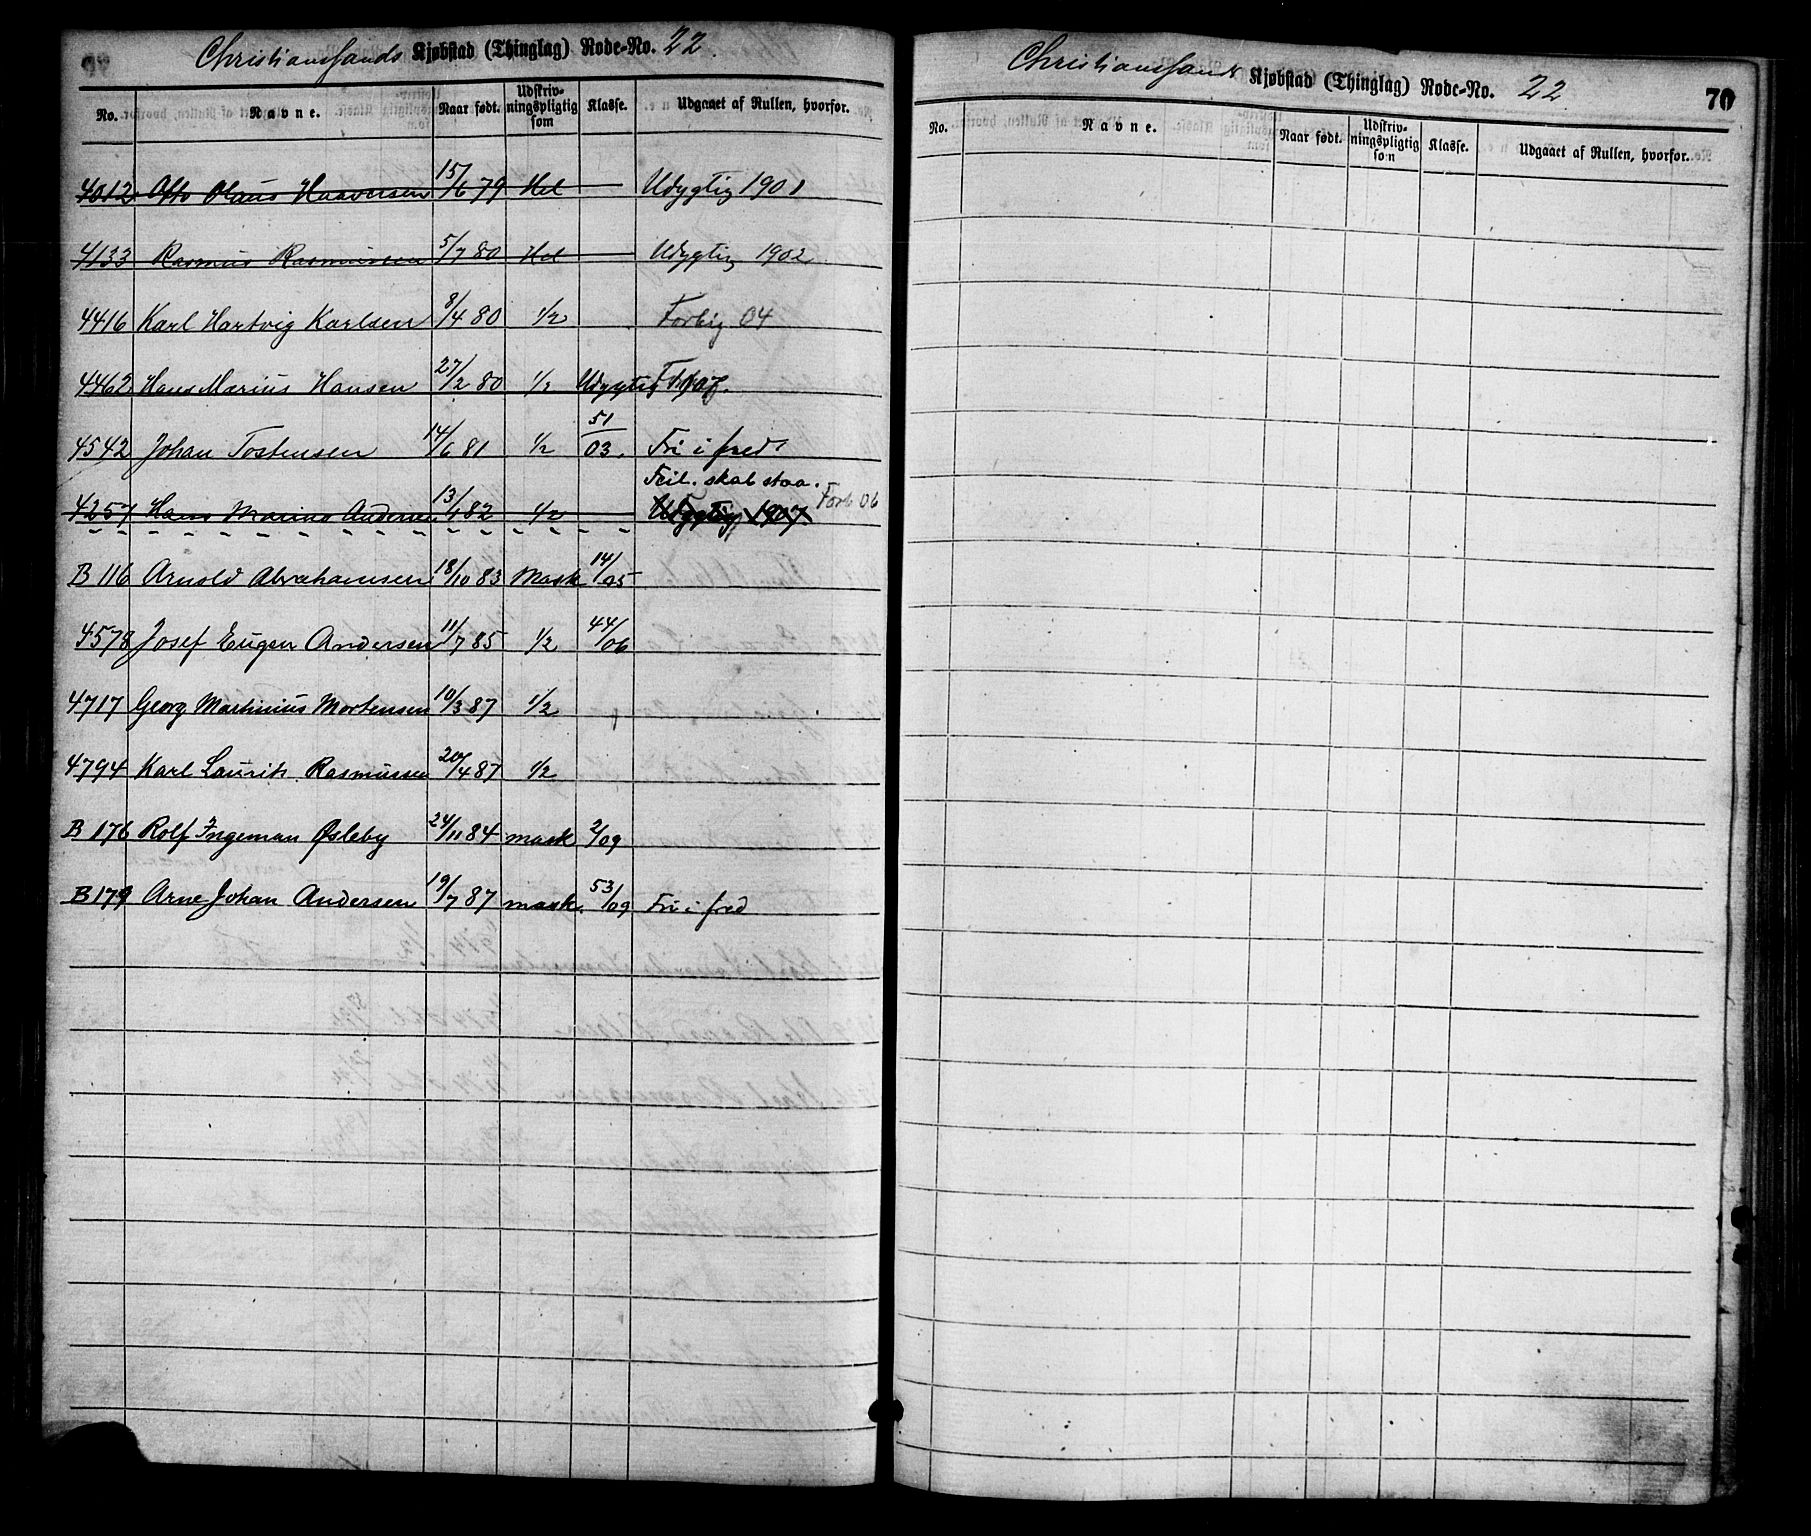 Christianssands Kjøbstad (Thinglag) Rode-No. 22.
No. Navne. Naar født. Udskrivningspligtig som Klasse. Udgaaet af Rullen, hvorfor.
4012 Otto Olaus Haaversen 15/6 79 Hel Udygtig 1901
4133 Rasmus Rasmussen 5/7 80 Hel Udygtig 1902
4416 Karl Hartvig Karlsen 8/4 80 1/2 Forbig 04
4462 Hans Marius Hansen 27/2 80 1/2 Udygtig
4542 Johan Tostensen 14/6 81 1/2 51/03. Fri i fred
Feil. skal staa.
4257 Hans Marius Andersen 13/1 82 1/2 Udygtig 1907. Forb 06
B 116 Arnold Abrahamsen 18/10 83 Mask 14/05
4578 Josef Eugen Andersen 11/7 85 1/2 44/06
4717 Georg Martinius Mortensen 10/3 87 1/2
4794 Karl Laurits Rasmussen 20/4 87 1/2
B 176 Rolf Ingeman Øsleby 24/11 84 mask 2/09
B 179 Arne Johan Andersen 19/7 87 mask. 53/09 Fri i fred
Christianssands Kjøbstad (Thinglag) Rode-No. 22
70
No. Navne. Naar født. Udskrivningspligtig som Klasse. Udgaaet af Rullen, hvorfor.